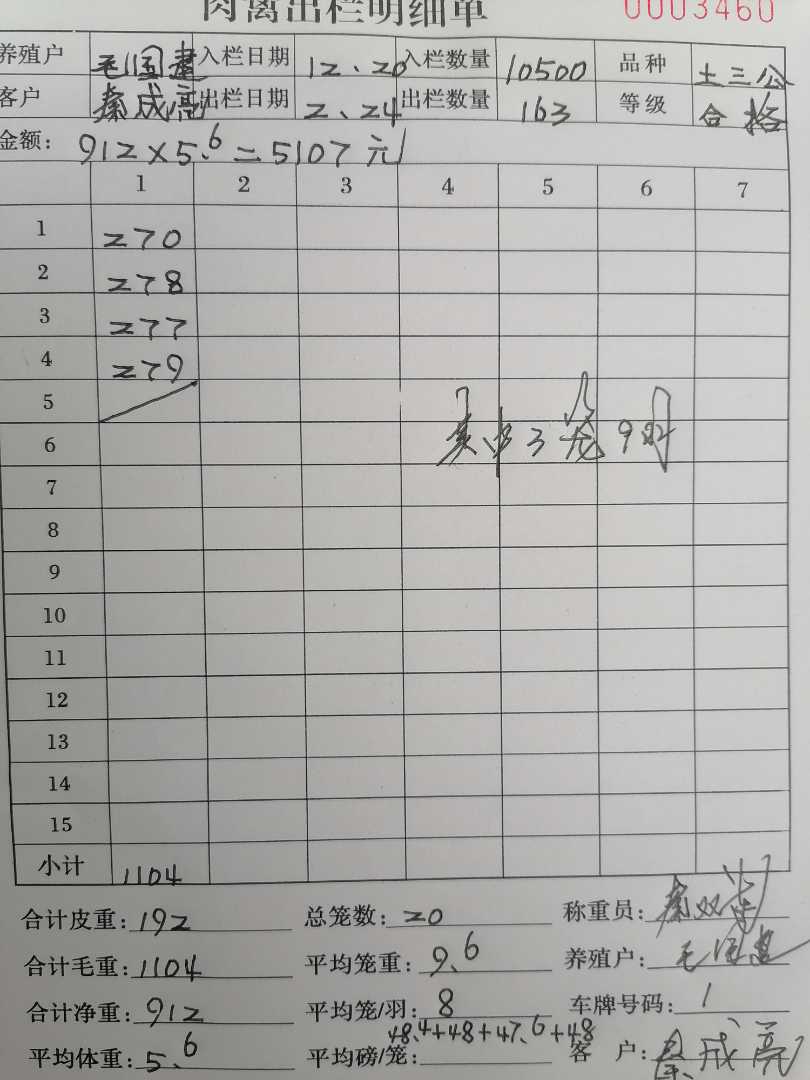 肉禽出栏明细单 0003460
养殖户 毛国建 入栏日期 12、20 入栏数量 10500 品种 土三公
客户 秦成亮 出栏日期 2、24 出栏数量 163 等级 合格
金额: 912×5.6=5107元
1 2 3 4 5 6 7
1 270
2 278
3 277
4 279
5
6 其中3笼9只
7
8
9
10
11
12
13
14
15
小计 1104
合计皮重: 192 总笼数: 20 称重员: 秦双
合计毛重: 1104 平均笼重: 9.6 养殖户: 毛国建
合计净重: 912 平均笼/羽: 8 车牌号码: 1
48.4+48+47.6+48
平均体重: 5.6 平均磅/笼: 客户: 秦成亮